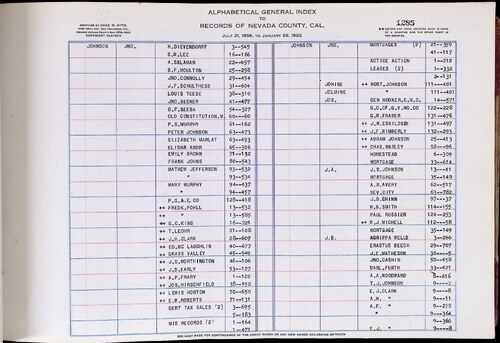 ALPHABETICAL GENERAL INDEX
TO
RECORDS OF NEVADA COUNTY, CAL.
JULY 21, 1856, TO JANUARY 28, 1922
COPYRIGHT CLAIMED
1285
JOHNSON JNO. H. DIEVENDORFF 3--545
S.W. LEE 1--166
A. SALMAN 22--457
B.F. MOULTON 25--298
JNO. CONNOLLY 29--454
J.F. SCHULTHESS 31--604
LOUIS TEESE 38--310
JNO. BECKER 41--477
D.F. SEEBA 54--327
OLD CONSTITUTION M. 60--60
P.S. MURPHY 61--162
PETER JOHNSON 63--473
ELIZABETH MARLAT 63--493
ELISHA ANDR 65--306
EMILY BROWN 71--132
FRANK JOHNS 80--543
MATHEW JEFFERSON 93--532
" 93--534
MARY MURPHY 94--437
" 94--457
P.G. & E. CO 128--418
++ FREDK. POHLL 13--532
++ " 13--585
++ G.C. KING 16--221
++ T. LEOHR 21--108
++ J.H. CLARK 28--607
++ ED. MC LAUGHLIN 40--677
++ GRASS VALLEY 45--549
++ J.G. WORTHINGTON 46--106
++ J.D. EARLY 53--127
++ A.P. FRARY 1--122
++ JOS. HIRSCHFIELD 18--210
++ LEWIS HORTON 70--650
++ E.W. ROBERTS 71--131
CERT TAX SALES (2) 2--695
3--183
MIS RECORDS (2) 1--164
1--471
JOHNSON JNO. MORTGAGES (2) 25--359
41--117
NOTICE ACTION 1--218
LEASES (2) 1--332
2--131
JOHINE ++ ROBT. JOHNSON 111---401
JCLUINE " 111---401
JOS. GEN HOOKER, G.M.C. 14--571
G.C. OF G.V. MG CO 122--228
G.W. FRASER 131--476
++ J.W. ESKILDSEN 131--497
++ J.F. KIMBERLY 132--293
++ ABRAM JOHNSON 25--413
++ CHAS. MASLEY 92--96
HOMESTEAD 6--309
MORTGAGE 33--614
J.A. J.B. JOHNSON 13--41
MORTGAGE 35--149
A.H. AVERY 62--517
NEV. CITY 63--782
J.D. CHINN 97--37
H.G. SMITH 114--155
PAUL ROSSIER 124--253
++ R.J. MICHELL 112--58
MORTGAGE 35--149
J.B. AGRIPPA WELLS 3--266
ERASTUS BEECH 29--707
J.E. MATHESON 30---5
JNO. CASHIN 50--458
DANL. FURTH 33--421
A.A. WOODWARD 8--416
T.J. JOHNSON 9---2
E.J. CLARK 9---8
A.H. " 9---11
A.F. " 9--278
" 9--364
" 9--366
E.J. " 9---8